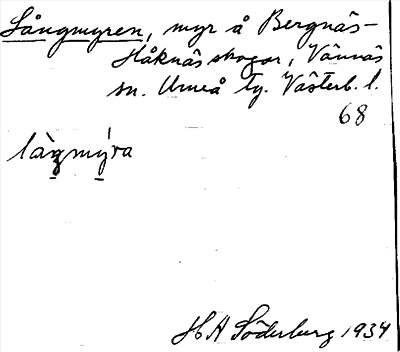 Långmyren, myr å Bergnäs-
Håknäs skogar, Vännäs
sn. Umeå tg. Västerb. l.
68
làgmýra
H A Söderberg 1934